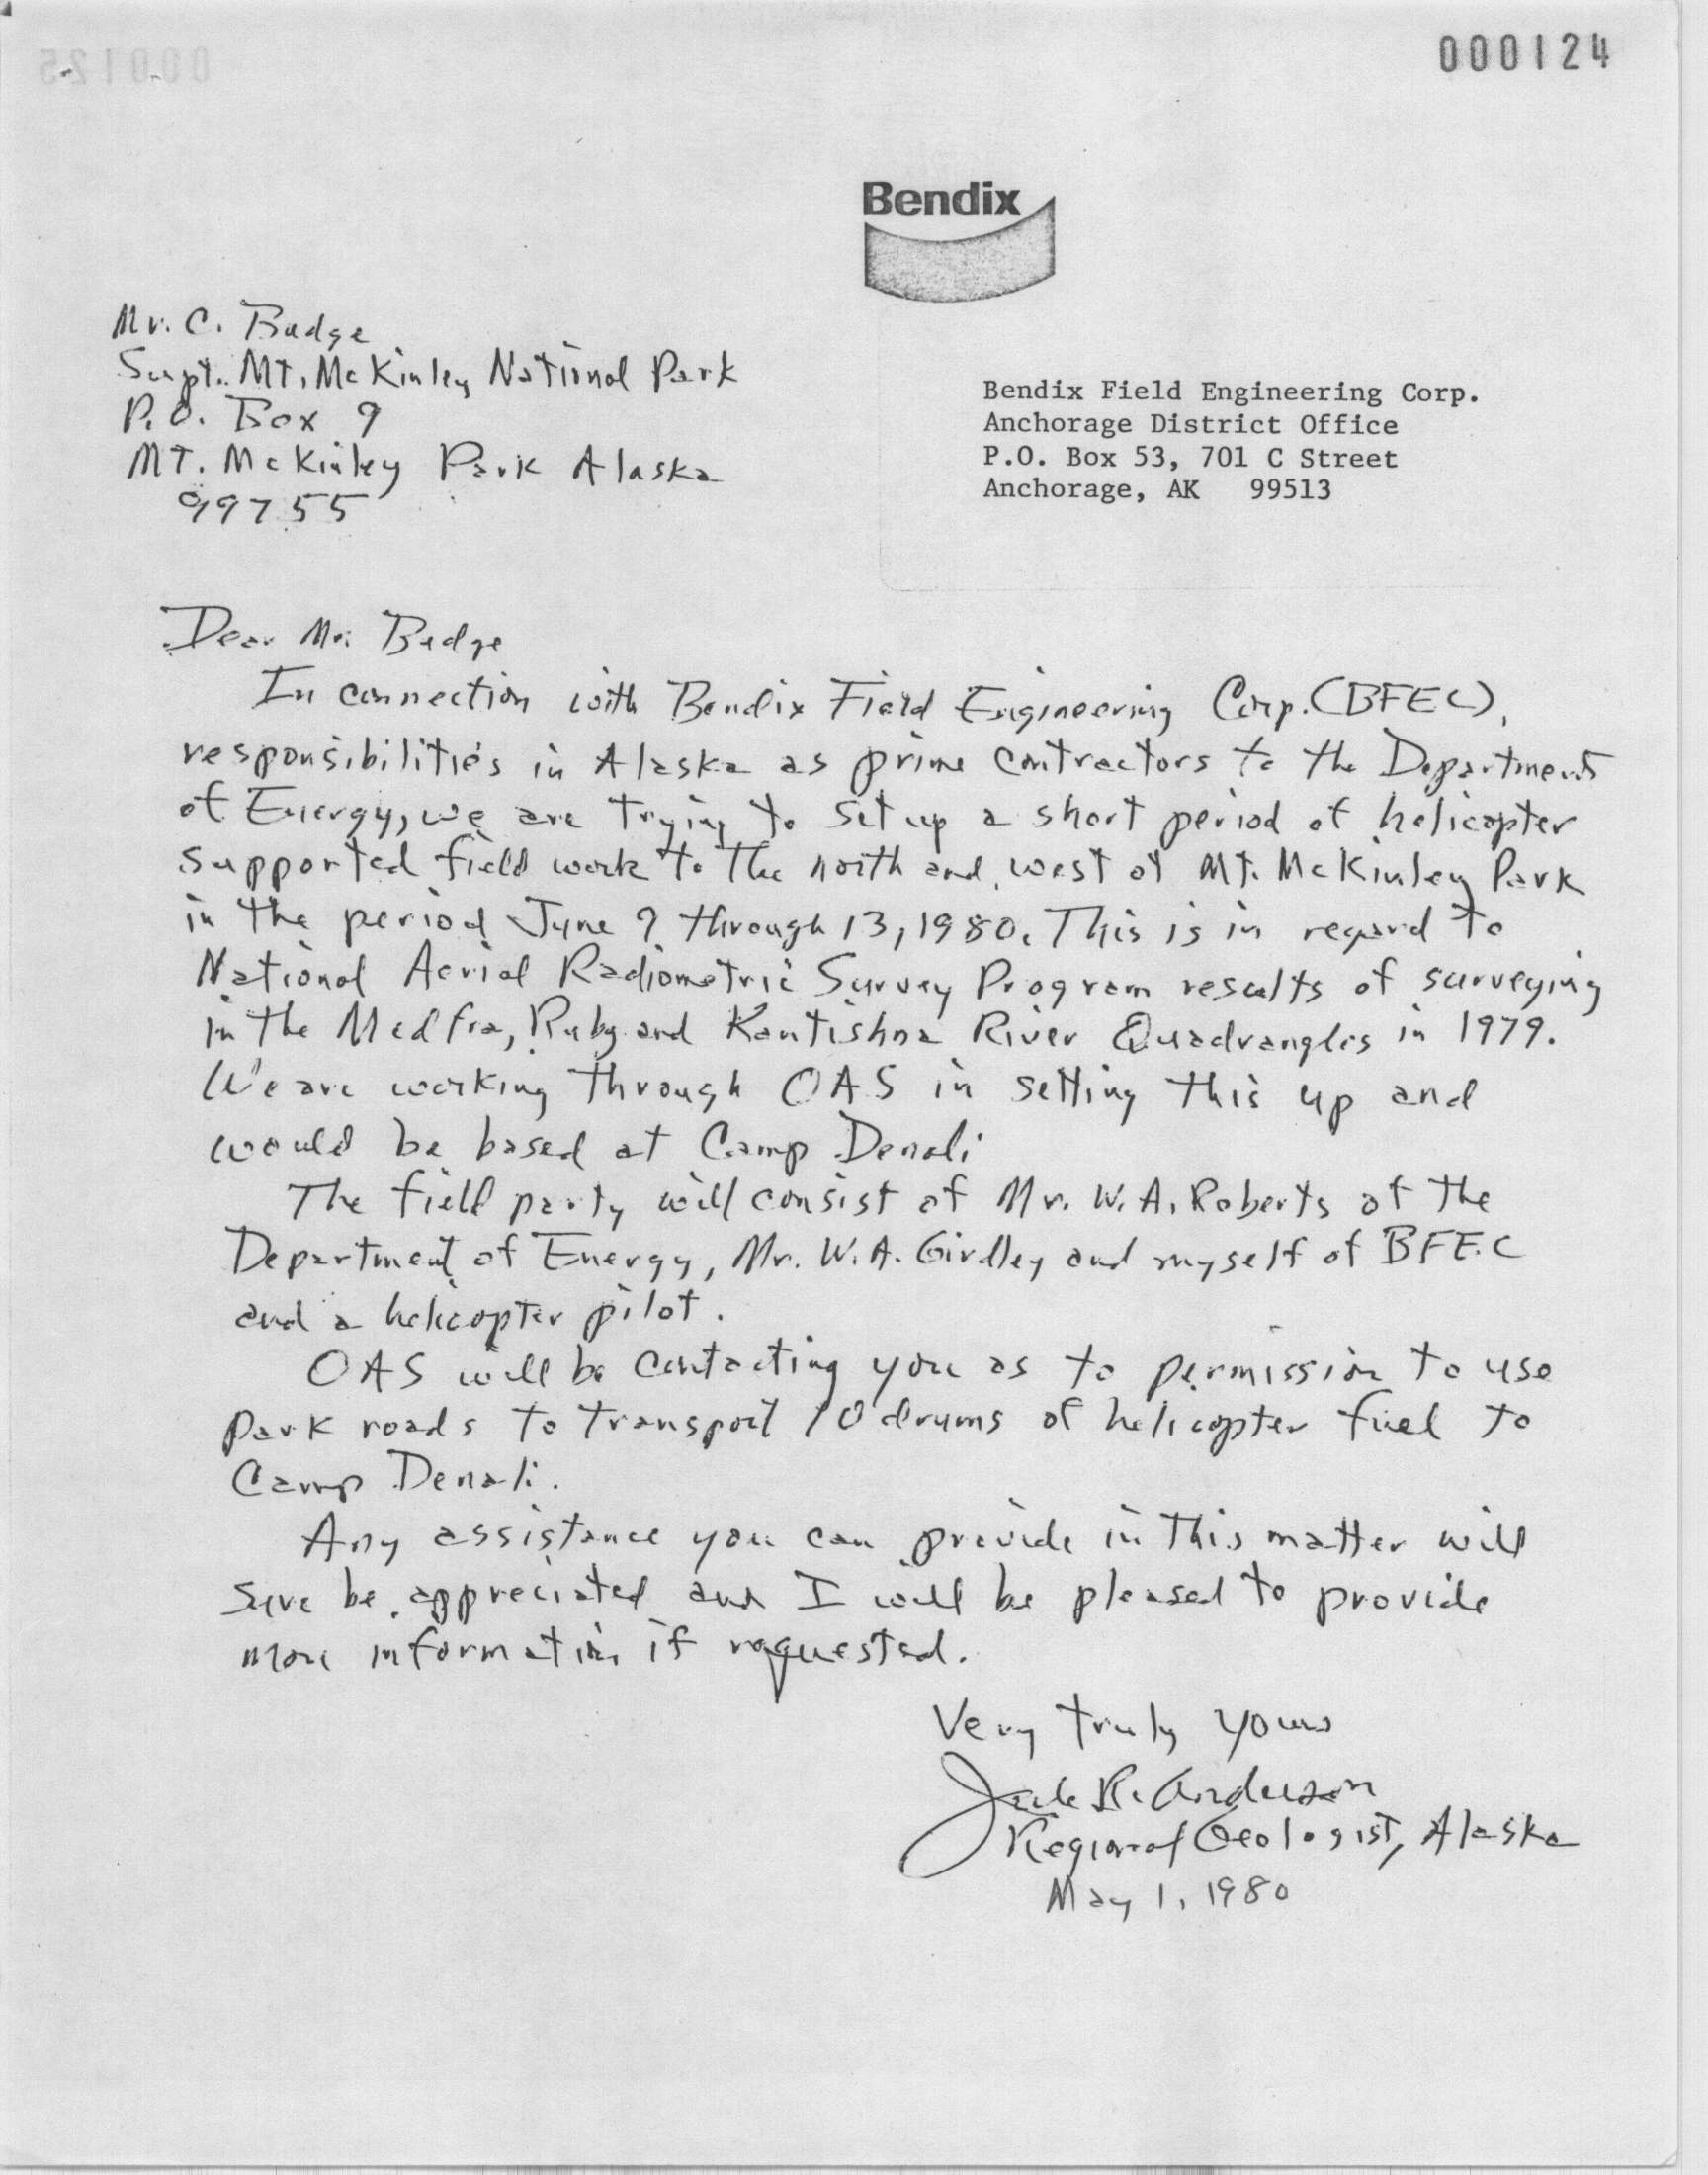 000124
000125
Bendix
Mr. C. Budge
Supt. Mt. McKinley National Park
P.O. Box 9
MT. McKinley Park Alaska
99755
Bendix Field Engineering Corp.
Anchorage District Office
P.O. Box 53, 701 C Street
Anchorage, AK 99513
Dear Mr. Budge
In connection with Bendix Field Engineering Corp. (BFEC),
responsibilities in Alaska as prime contractors to the Department
of Energy, we are trying to set up a short period of helicopter
supported field work to the north and west of Mt. McKinley Park
in the period June 9 through 13, 1980. This is in regard to
National Aerial Radiometric Survey Program results of surveying
in the Medfra, Ruby and Kantishna River Quadrangles in 1979.
We are working through OAS in setting this up and
would be based at Camp Denali
The field party will consist of Mr. W. A. Roberts of the
Department of Energy, Mr. W. A. Girdley and myself of BFEC
and a helicopter pilot.
OAS will be contacting you as to permission to use
Park roads to transport 10 drums of helicopter fuel to
Camp Denali.
Any assistance you can provide in this matter will
sure be appreciated and I will be pleased to provide
more information if requested.
Very truly yours
R. Anderson
Regional Geologist, Alaska
May 1, 1980